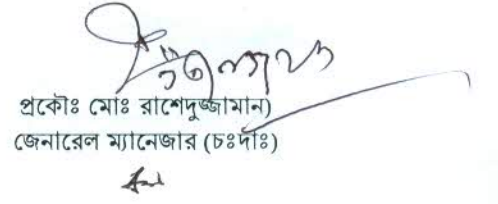 প্রকৌঃ মোঃ রাশেদুজ্জামান)
জেনারেল ম্যানেজার (চঃদাঃ)